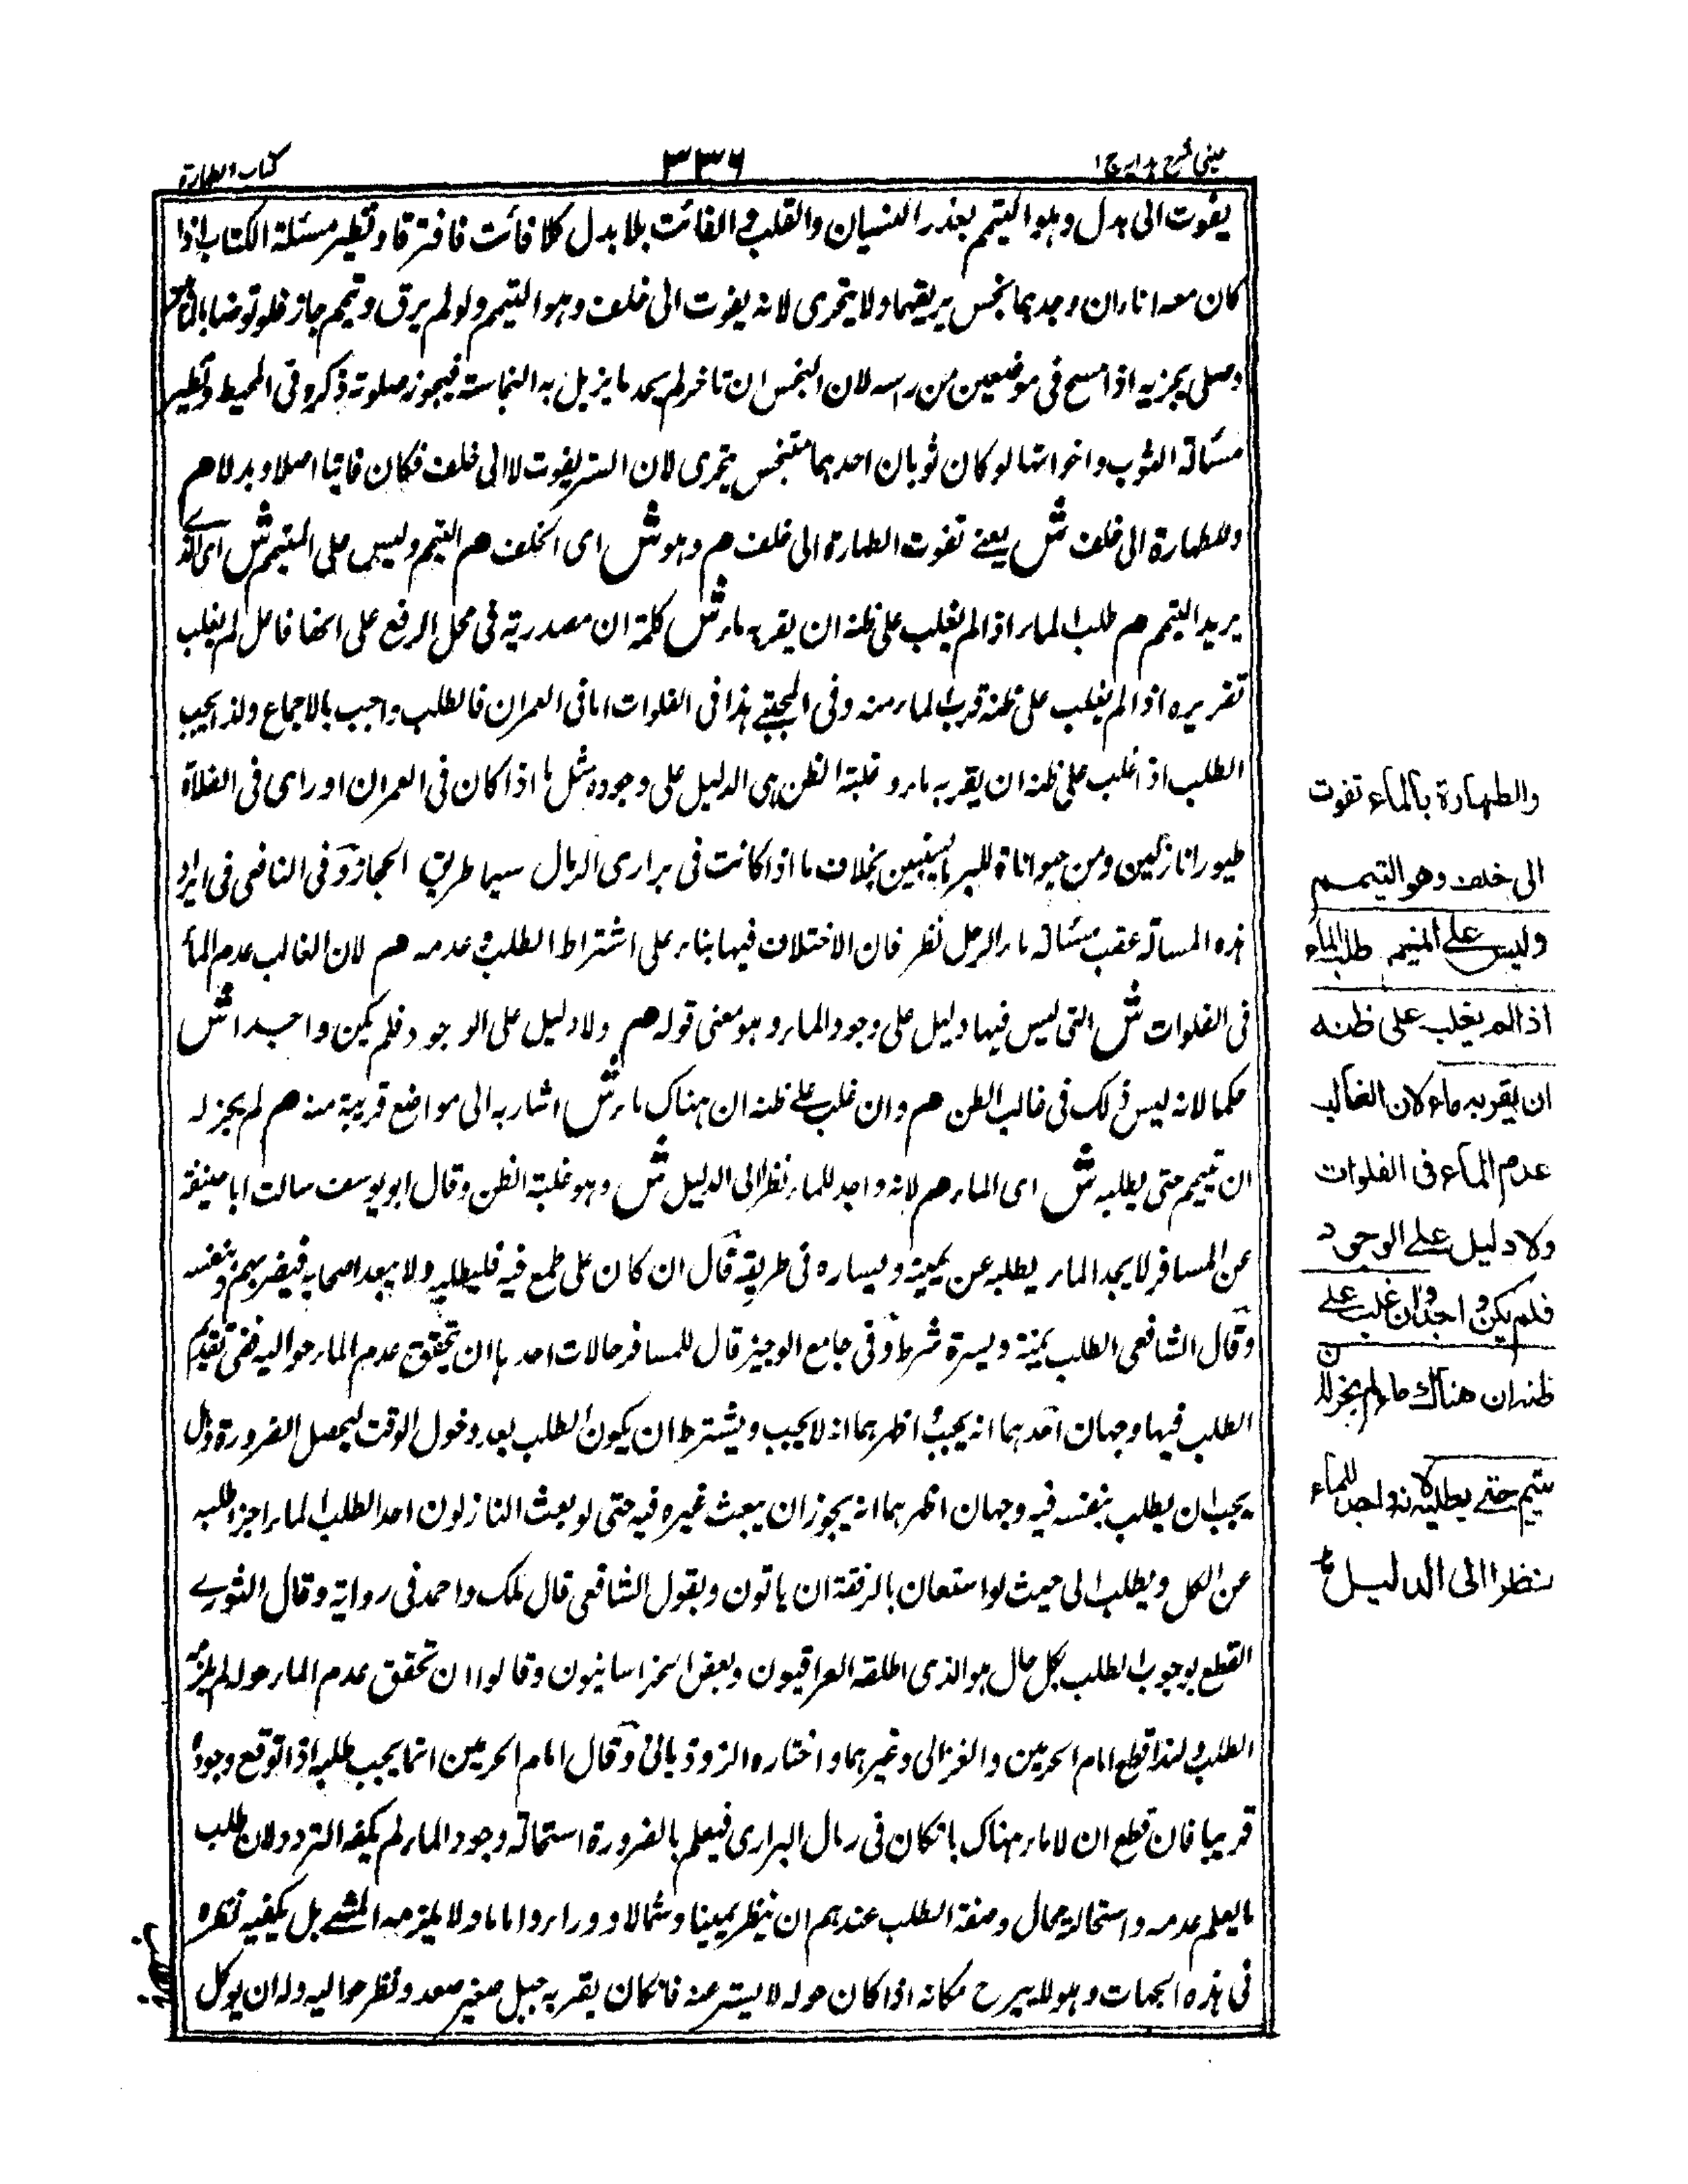 عینی شرح ہدایہ ج ۱
۳۳۶
کتاب الطهارة
یفوت الی بدل وهو التیمم بعذر النسیان والقلب و الفائت بلا بدل کلا فائت فافترقا ونظیر مسئلة الکتاب اذا
کان معه اناءان وجدهما نجس یریقهما ولا یتحری لانه یفوت الی خلف وهو التیمم ولو لم یرق وتیمم جاز فلو توضا
وصلی یجزیه اذا مسح فی موضعین من راسه لان النجس ان تاخر لم یجد ما یزیل به النجاسة فیجوز صلوته ذکره فی المحیط ونظیر
مسئالة الثوب واخواتها لو کان ثوبان احدهما متنجس یتحری لان الستر یفوت لا الی خلف فکان فایتا اصلا وبدلا هم
والطهارة الی خلف ش یعنے تفوت الطهارة الی خلف هم وهو ش ای الخلف هم التیمم ولیس علی المتیمم ش ای الذے
یرید التیمم هم طلب الماء اذا لم یغلب علی ظنه ان یقربه ماء ش کلمة ان مصدریة فی محل الرفع علی انها فاعل لم یغلب
تقریره اذا لم یغلب علی ظنه قرب الماء منه وفی المجتبے هذا فی الفلوات اما فی العمران فالطلب واجب بالاجماع ولذا یجب
الطلب اذا غلب علی ظنه ان یقربه ماء و غلبة الظن هی الدلیل علی وجوده مثل ما اذا کان فی العمران او رای فی الفلاة
طیورا نازلین ومن حیوانات للبر بخلاف ما اذا کانت فی براری الرمال سیما طریق الحجاز وفی النافعی فی ایراد
هذه المسالة عقب مسئالة ماء الرحل نظر فان الاختلاف فیها بناء علی اشتراط الطلب و عدمه هم لان الغالب عدم الماء
فی الفلوات ش التی لیس فیها دلیل علی وجود الماء وهو معنی قوله هم ولا دلیل علی الوجود فلم یکن واجدا ش
حکما لانه لیس ذلک فی غالب الظن هم وان غلب علے ظنه ان هناک ماء ش اشار به الی مواضع قریبة منه هم لم یجز له
ان تیمم حتی یطلبه ش ای الماء هم لانه واجد للماء نظرا الی الدلیل ش وهو غلبة الظن وقال ابو یوسف سالت ابا حنیفة
عن المسافر لا یجد الماء یطلبه عن یمینه ویساره فی طریقه قال ان کان علی طمع فیه فلیطلبه ولا یبعد اصحابه فیضر بهم وبنفسه
وقال الشافعی الطلب یمنة ویسرة شرط وفی جامع الوجیز قال للمسافر حالات احدها ان تحقق عدم الماء حوالیه ففی تقدیم
الطلب فیها وجهان احدهما انه یجب و اظهرهما انه لا یجب ویشترط ان یکون الطلب بعد دخول الوقت لیحصل الضرورة وهل
یجب ان یطلب بنفسه فیه وجهان اظهرهما انه یجوز ان یبعث غیره فیه حتی لو بعث النازلون احدا لطلب الماء اجزا طلبه
عن الکل ویطلب الی حیث لو استعان بالرفقة ان یاتون وبقول الشافعی قال ملک واحمد فی روایة وقال الثورے
القطع بوجوب الطلب بکل حال هو الذی اطلقه العراقیون وبعض الخراسانیون وقالوا ان تحقق عدم الماء حوله لم یلزمه
الطلب ولهذا قطع امام الحرمین والغزالی وغیرهما واختاره الرویانی وقال امام الحرمین انما یجب طلبه اذا توقع وجوده
قریبا فان قطع ان لا ماء هناک بان کان فی رمال البراری فیعلم بالضرورة استحالة وجود الماء لم یکفه التردد لان طلب
ما یعلم عدمه واستحالته محال وصفة الطلب عندهم ان ینظر یمینا وشمالا ووراء واماما ولا یلزمه المشے بل یکفیه نظره
فی هذه الجهات وهو لا یبرح مکانه اذا کان حوله لا یستر عنه فان کان یقربه جبل صغیر صعد ونظر حوالیه وله ان یوکل
والطهارة بالماء تفوت
الی خلف وهو التیمم
ولیس علی المتیمم طلب الماء
اذا لم یغلب علی ظنه
ان یقربه ماء لان الغالب
عدم الماء فی الفلوات
ولا دلیل علے الوجود
فلم یکن واجدا وان غلب علے
ظنه ان هناک ماء لم یجز له ان
یتیم حتے یطلبه لانه واجد للماء
نظرا الی الدلیل